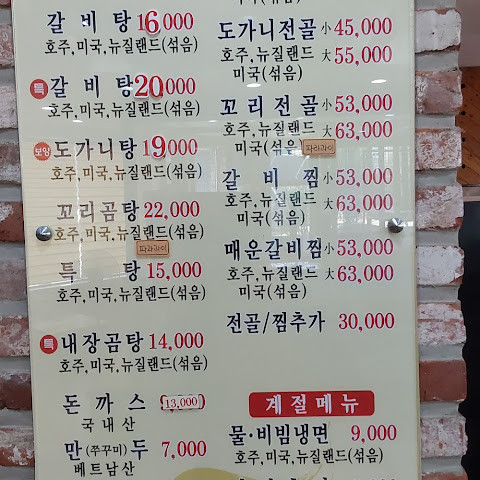 갈비탕 16,000
호주, 미국, 뉴질랜드(섞음)
특 갈비탕 20,000
호주, 미국, 뉴질랜드(섞음)
보양 도가니탕 19,000
호주, 미국, 뉴질랜드(섞음)
꼬리곰탕 22,000
호주, 미국, 뉴질랜드(섞음)
파라과이
특탕 15,000
호주, 미국, 뉴질랜드(섞음)
특 내장곰탕 14,000
호주, 미국, 뉴질랜드(섞음)
돈까스 (13,000)
국내산
만(쭈꾸미)두 7,000
베트남산
도가니전골 小 45,000
호주, 뉴질랜드 大 55,000
미국(섞음)
꼬리전골 小 53,000
호주, 뉴질랜드 大 63,000
미국(섞음) 파라과이
갈비찜 小 53,000
호주, 뉴질랜드 大 63,000
미국(섞음)
매운갈비찜 小 53,000
호주, 뉴질랜드 大 63,000
미국(섞음)
전골/찜추가 30,000
계절메뉴
물·비빔냉면 9,000
호주, 미국, 뉴질랜드(섞음)